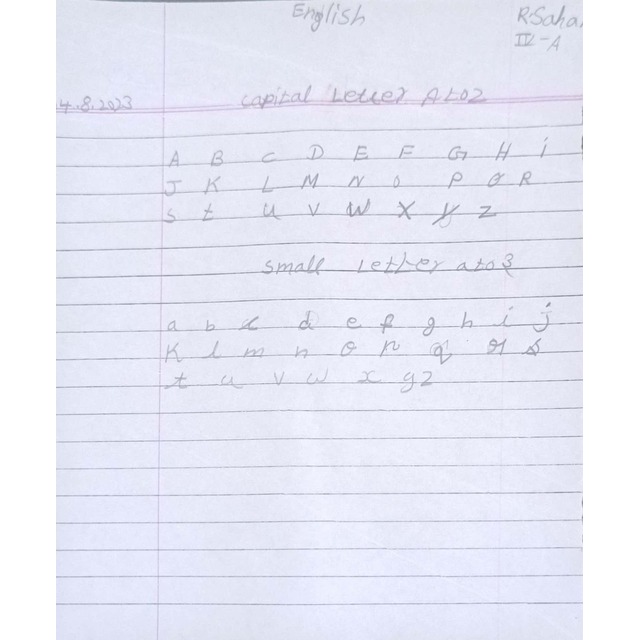 English R.Saha
IV-A
4.8.2023 capital Letter A to Z
A B C D E F G H i
J K L M N O P Q R
S t U V W X y Z
small Letter a to z
a b c d e f g h i j
K l m n o p q r s
t u v w x y z